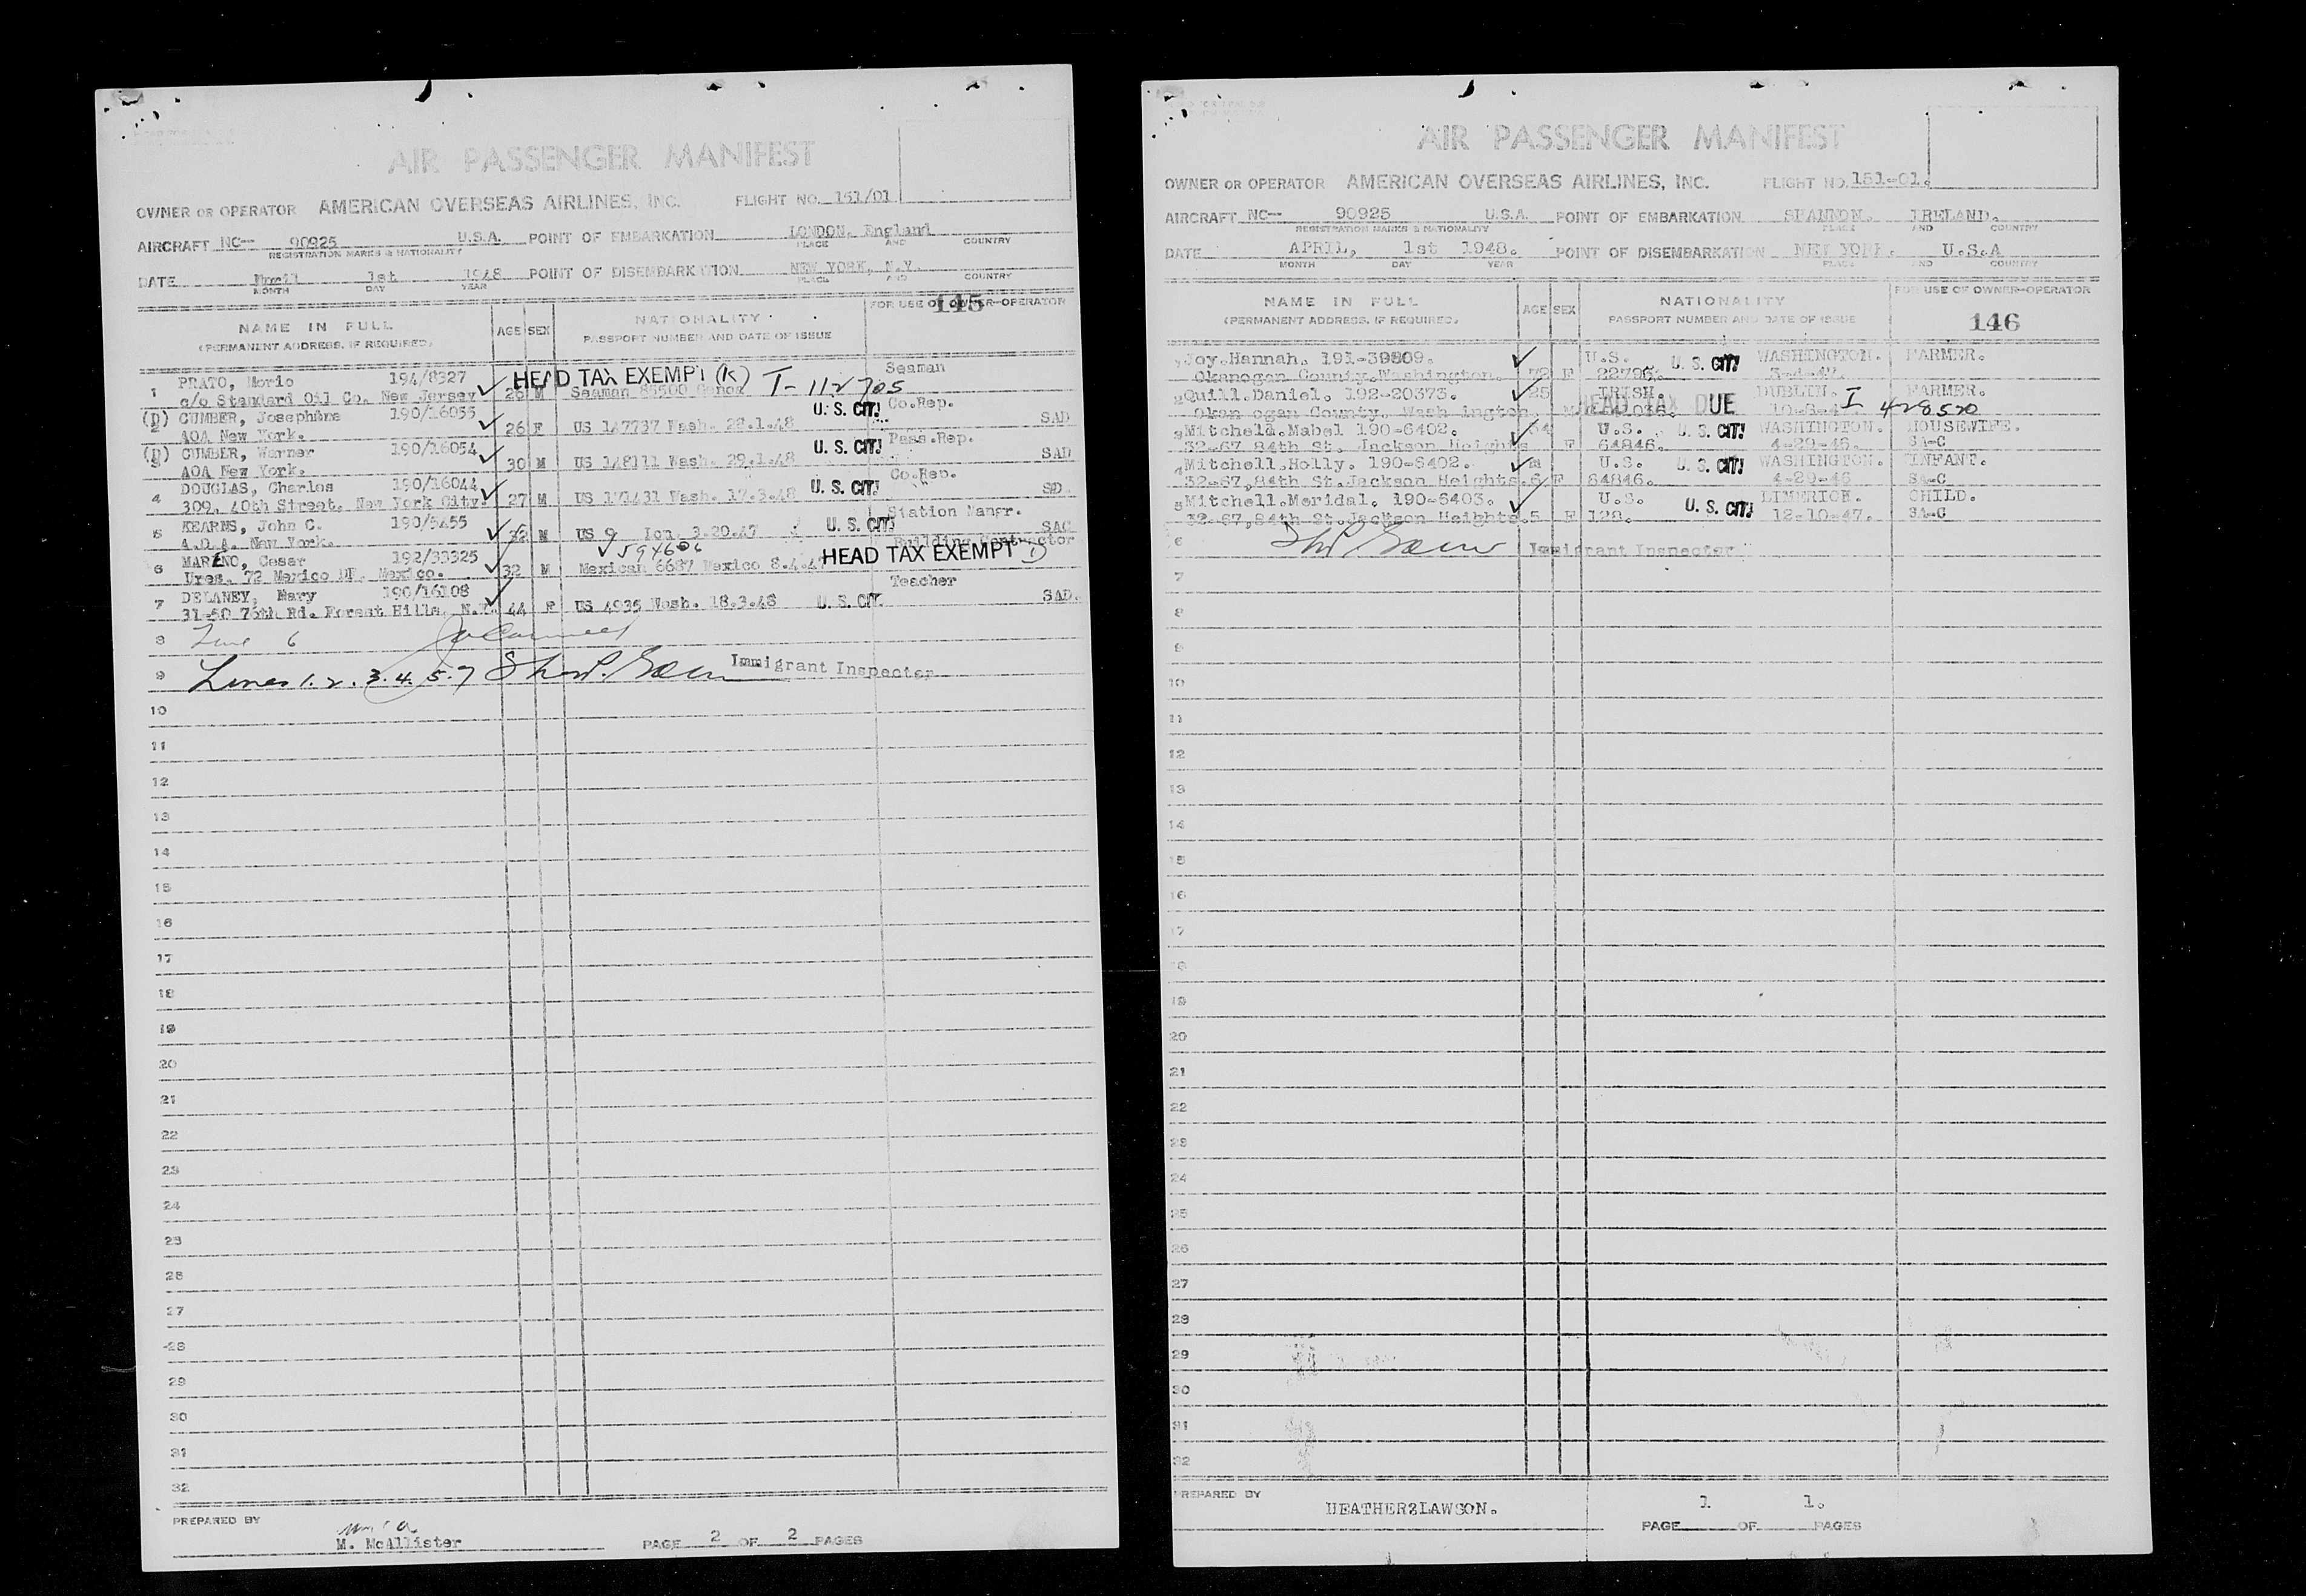 AIR PASSENGER MANIFEST
OWNER OR OPERATOR AMERICAN OVERSEAS AIRLINES, INC. FLIGHT NO. 151/01
AIRCRAFT NC-- 90925 U.S.A. POINT OF EMBARKATION LONDON, England
REGISTRATION MARKS & NATIONALITY PLACE AND COUNTRY
DATE April 1st 1948 POINT OF DISEMBARKATION NEW YORK, N.Y.
MONTH DAY YEAR PLACE AND COUNTRY
145
NAME IN FULL AGE SEX NATIONALITY FOR USE OF OWNER-OPERATOR
(PERMANENT ADDRESS, IF REQUIRED) PASSPORT NUMBER AND DATE OF ISSUE
1 PRATO, Mario 194/8327 HEAD TAX EXEMPT (K) I-112705 Seaman
c/o Standard Oil Co. New Jersey 26 M Seaman 85500 Genoa
(D) 2 CUMBER, Josephine 190/16055 U. S. CIT. Co.Rep.
AOA New York. 26 F US 147737 Wash. 28.1.48 SAD
(D) 3 CUMBER, Warner 190/16054 U. S. CIT. Pass.Rep.
AOA New York. 30 M US 148111 Wash. 29.1.48 SAD
4 DOUGLAS, Charles 190/16044 U. S. CIT. Co.Rep.
309, 40th Street, New York City. 27 M US 171431 Wash. 17.3.48 SD.
5 KEARNS, John C. 190/5455 U. S. CIT. Station Mangr.
A.O.A. New York. 32 M US 9 Lon. 3.20.47 SAC
6 MARENO, Cesar 192/33325 594606 HEAD TAX EXEMPT Building Contractor
Ures. 72 Mexico DF. Mexico. 32 M Mexican 6687 Mexico
7 DELANEY, Mary 190/16108 Teacher
31-50 76th Rd. Forest Hills, N.Y. 44 F US 4935 Wash. 18.3.48 U. S. CIT. SAD.
8 Line 6
9 Lines 1. 2. 3. 4. 5. 7 Immigrant Inspector
10
11
12
13
14
15
16
17
18
19
20
21
22
23
24
25
26
27
28
29
30
31
32
PREPARED BY
M. McAllister PAGE 2 OF 2 PAGES
AIR PASSENGER MANIFEST
OWNER OR OPERATOR AMERICAN OVERSEAS AIRLINES, INC. FLIGHT NO. 151-01.
AIRCRAFT NC-- 90925 U.S.A. POINT OF EMBARKATION SHANNON. IRELAND.
REGISTRATION MARKS & NATIONALITY PLACE AND COUNTRY
DATE APRIL, 1st 1948. POINT OF DISEMBARKATION NEW YORK. U.S.A
MONTH DAY YEAR PLACE AND COUNTRY
NAME IN FULL AGE SEX NATIONALITY FOR USE OF OWNER-OPERATOR
(PERMANENT ADDRESS, IF REQUIRED) PASSPORT NUMBER AND DATE OF ISSUE
146
Joy.Hannah. 191-39809. U.S. U. S. CIT. WASHINGTON. FARMER.
Okanogan County.Washington. 72 F 22796. 3-4-47.
2 Quill.Daniel. 192-20373. 25 IRISH. DUBLIN. FARMER.
Okan ogan County. Wash ington. M HEAD TAX DUE I 428520
3 Mitchell.Mabel 190-6402. 34 U.S. U. S. CIT. WASHINGTON. HOUSEWIFE.
32-67 84th St. Jackson Heights F 64846. 4-29-46. SA-C
4 Mitchell.Holly. 190-6402. m U.S. U. S. CIT. WASHINGTON. INFANT.
32-67,84th St.Jackson Heights. 6 F 64846. 4-29-46 SA-C
5 Mitchell.Meridal. 190-6403. U.S. U. S. CIT. LIMERICK. CHILD.
32-67,84th St.Jackson Heights. 5 F 128. 12-10-47. SA-C
6 Immigrant Inspector
7
8
9
10
11
12
13
14
15
16
17
18
19
20
21
22
23
24
25
26
27
28
29
30
31
32
PREPARED BY HEATHER&LAWSON. PAGE 1 OF 1. PAGES